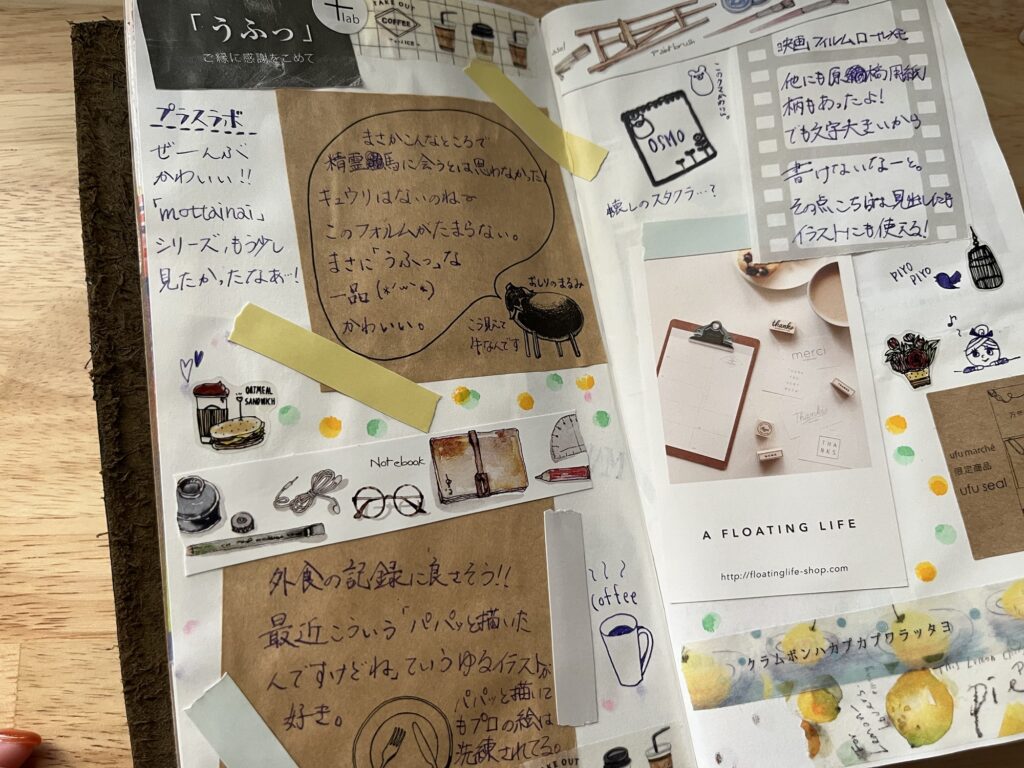 「うふっ」
ご縁に感謝をこめて
+lab
TAKE OUT
COFFEE
プラスラボ
ぜーんぶ
かわいい!!
「mottainai」
シリーズ、もう少し
見たかったなあ〜!
まさかこんなところで
精霊馬に会うとは思わなかった!
キュウリはないのね〜
このフォルムがたまらない。
まさに「うふっ」な
一品(*´ω`*)
かわいい。
おしりのまるみ
こう見えて
牛なんです
OATMEAL
SANDWICH
Notebook
外食の記録に良さそう!!
最近こういう「パパッと描いた
んですけどね」ていうゆるイラストが
好き。
パパッと描いて
もプロの絵は
洗練されてる。
Coffee
TAKE OUT
Paintbrush
OSMO
懐しのスタクラ…?
映画フィルムロールメモ
他にも原稿用紙
柄もあったよ!
でも文字大きいから
書けないなーと。
その点こちらは見出しにも
イラストにも使える!
PIYO
PIYO
thanks
merci
Thanks
THA
NKS
A FLOATING LIFE
http://floatinglife-shop.com
ufu marché
限定商品
ufu seal
クラムボンハカプカプワラッタヨ